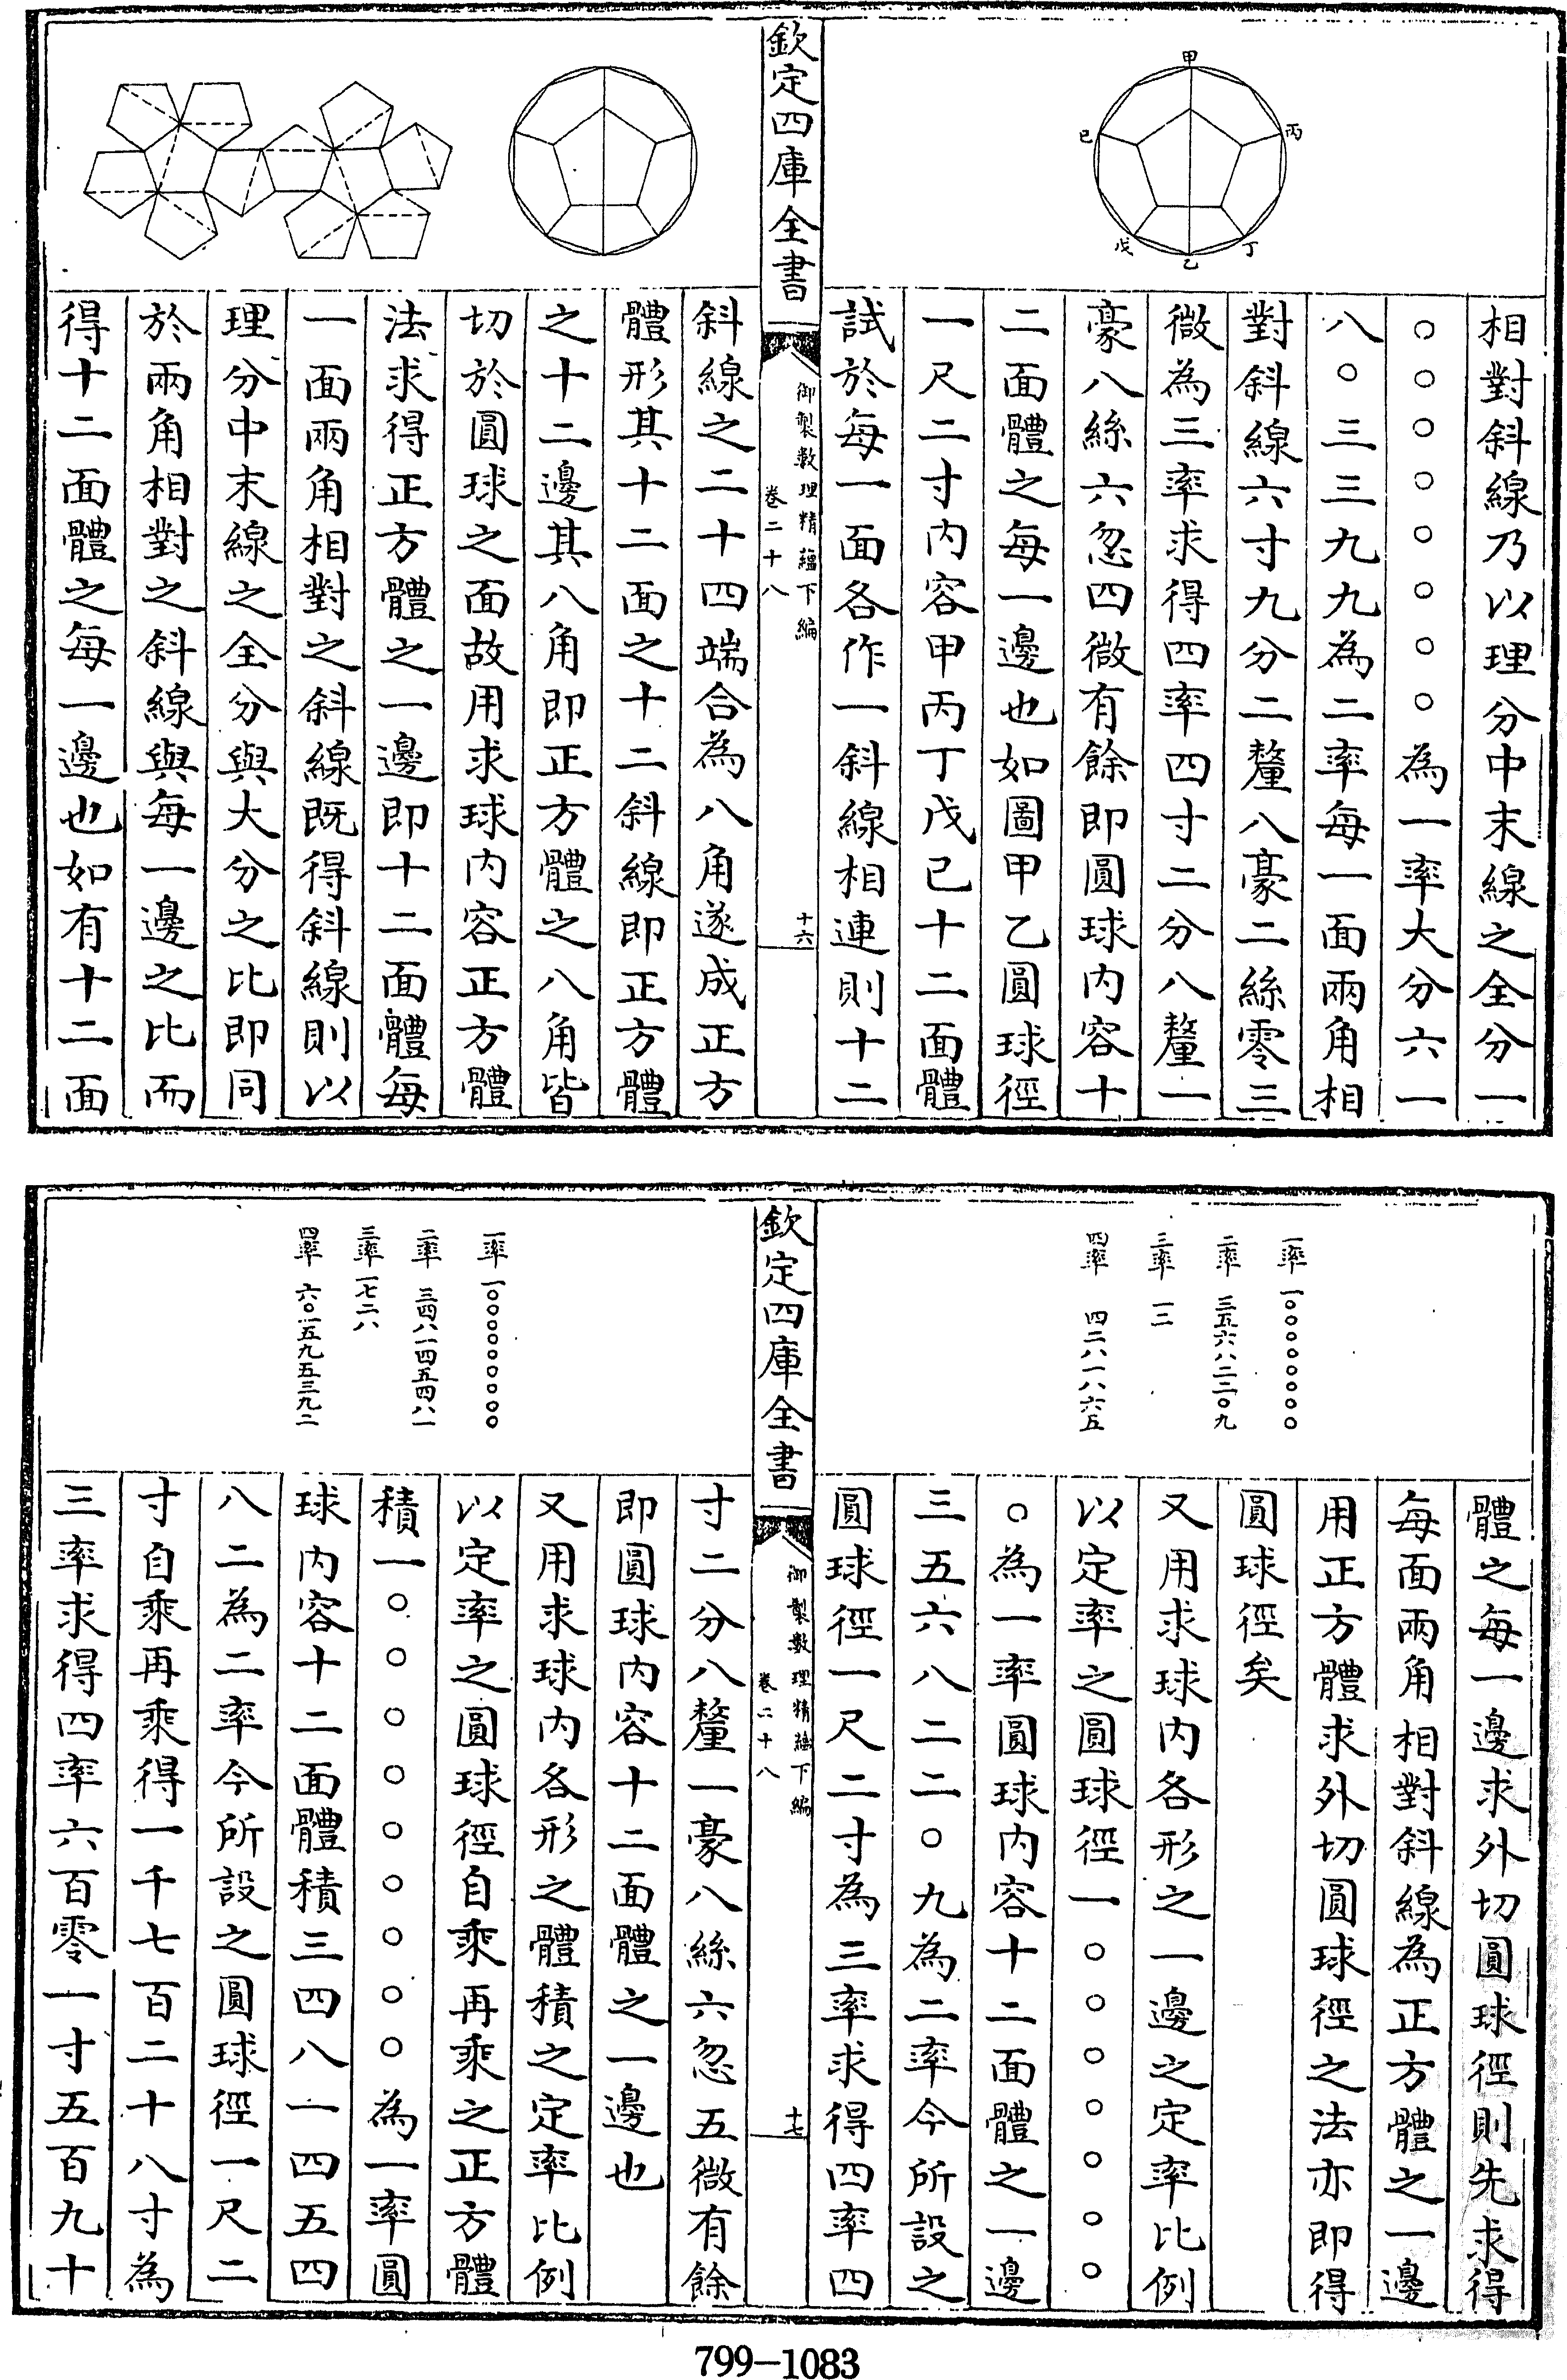 甲
丙
丁
乙
戊
己
相對斜線乃以理分中末線之全分一
○○○○○○○○為一率大分六一
八○三三九九為二率每一面兩角相
對斜線六寸九分二釐八豪二絲零三
微為三率求得四率四寸二分八釐一
豪八絲六忽四微有餘即圓球内容十
二面體之每一邊也如圖甲乙圓球徑
一尺二寸内容甲丙丁戊己十二面體
試於每一面各作一斜線相連則十二
欽定四庫全書
御製數理精蘊下編
卷二十八
十六
斜線之二十四端合為八角遂成正方
體形其十二面之十二斜線即正方體
之十二邊其八角即正方體之八角皆
切於圓球之面故用求球内容正方體
法求得正方體之一邊即十二面體每
一面兩角相對之斜線既得斜線則以
理分中末線之全分與大分之比即同
於兩角相對之斜線與每一邊之比而
得十二面體之每一邊也如有十二面
一率 一○○○○○○○○
二率 三五六八二二○九
三率 一二
四率 四二八一八六五
體之每一邊求外切圓球徑則先求得
每面兩角相對斜線為正方體之一邊
用正方體求外切圓球徑之法亦即得
圓球徑矣
又用求球内各形之一邊之定率比例
以定率之圓球徑一○○○○○○○
○為一率圓球内容十二面體之一邊
三五六八二二○九為二率今所設之
圓球徑一尺二寸為三率求得四率四
欽定四庫全書
御製數理精蘊下編
卷二十八
十七
一率 一○○○○○○○○○
二率 三四八一四五四八二
三率 一七二八
四率 六○一五九五三九二
寸二分八釐一豪八絲六忽五微有餘
即圓球内容十二面體之一邊也
又用求球内各形之體積之定率比例
以定率之圓球徑自乘再乘之正方體
積一○○○○○○○○○為一率圓
球内容十二面體積三四八一四五四
八二為二率今所設之圓球徑一尺二
寸自乘再乘得一千七百二十八寸為
三率求得四率六百零一寸五百九十
799-1083